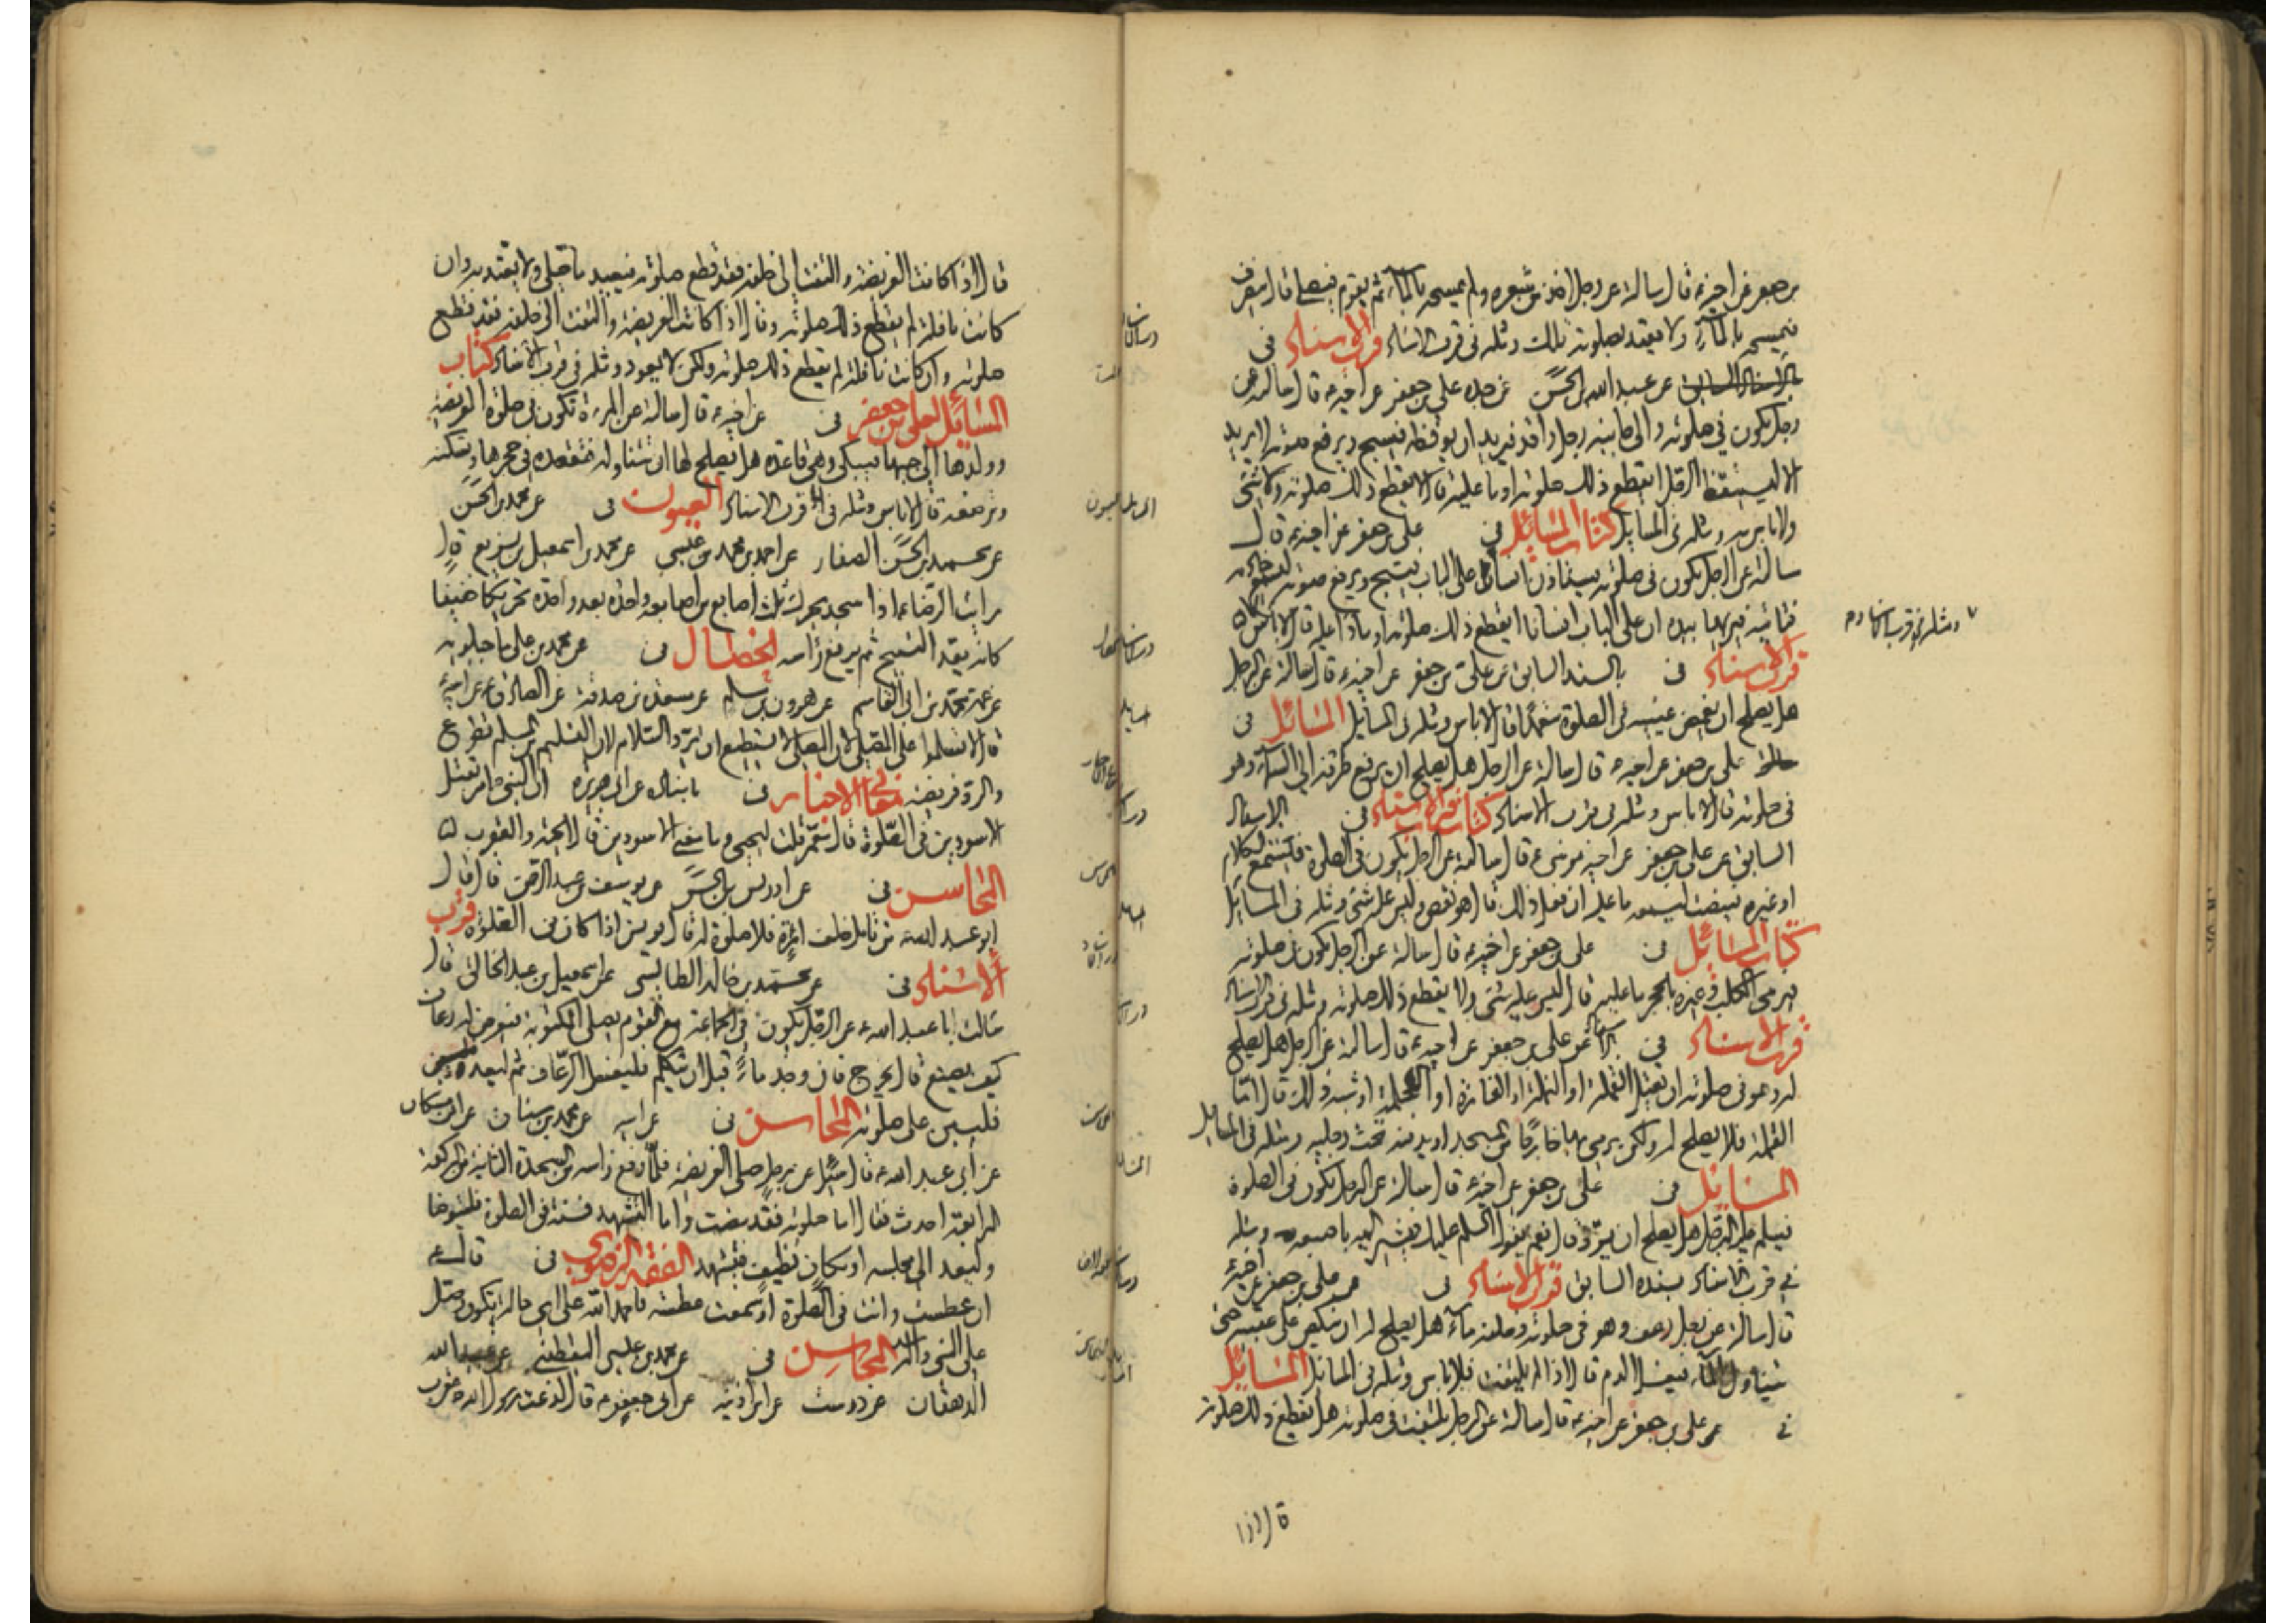 بن جعفر عن اخيه ع قال سالته عن رجل اخذ من شعره ولم يمسحه بالماء ثم يقوم فيصلى قال ينصرف
فيمسحه بالماء ولا يعتد بصلوته تلك ومثله فى قرب الاسناد قرب الاسناد فى
عن عبد الله بن الحسن عن جده على بن جعفر عن اخيه ع قال سالته عن
رجل يكون في صلوته والى جانبه رجل راقد فيريد ان يوقظه فيسبح ويرفع صوته لا يريد
الا ليستيقظ الرجل ايقطع ذلك صلوته او ما عليه قال لا يقطع ذلك صلوته ولا شئ
ولا باس به ومثله فى المسايل كتاب المسائل في على بن جعفر عن اخيه ع قال
سالته عن الرجل يكون فى صلوته يستاذن انسان على الباب فيسبح ويرفع صوته ليسمع خادمه
فتاتيه فيريها بيده ان على الباب انسانا ايقطع ذلك صلوته او ماذا عليه قال لا باس
ومثله في قرب الاسناد
قرب الاسناد فى بالسند السابق عن على بن جعفر عن اخيه ع قال سالته عن الرجل
هل يصلح ان يغمض عينيه فى الصلوة متعمدا قال لا باس ومثله فى المسايل المسائل فى
على بن جعفر عن اخيه ع قال سالته عن الرجل هل يصلح ان يرفع طرفه الى السماء وهو
فى صلوته قال لا باس ومثله فى قرب الاسناد كتاب قرب الاسناد فى بالاسناد
السابق عن على بن جعفر عن اخيه موسى ع قال سالته عن الرجل يكون فى الصلوة فيستمع الكلام
او غيره فينصت ليسمعه ما عليه ان فعل ذلك قال هو نقص وليس عليه شئ ومثله فى المسايل
كتاب المسائل فى على بن جعفر عن اخيه ع قال سالته عن الرجل يكون فى صلوته
فيرمى الكلب وغيره بالحجر ما عليه قال ليس عليه شئ ولا يقطع ذلك صلوته ومثله فى قرب الاسناد
قرب الاسناد في عن على بن جعفر عن اخيه ع قال سالته عن الرجل هل يصلح
له وهو فى صلوته ان يقتل القملة او النملة او الفارة او الحلمة او شبه ذلك قال اما
القملة فلا يصلح له ولكن يرمى بها خارجا من المسجد او يدفنها تحت رجليه ومثله فى المسايل
المسائل فى على بن جعفر عن اخيه ع قال سالته عن الرجل يكون فى الصلوة
فيسلم عليه الرجل هل يصلح ان يرد قال نعم يقول السلم عليك فيشير اليه باصبعه ومثله
في قرب الاسناد بسنده السابق قرب الاسناد فى عن على بن جعفر عن اخيه
قال سالته عن رجل رعف وهو فى صلوته وخلفه ماء هل يصلح له ان ينكص على عقبيه حتى
يتناول الماء فيغسل الدم قال اذا لم يلتفت فلا باس ومثله فى المسايل المسائل
في عن على بن جعفر عن اخيه ع قال سالته عن الرجل يلتفت فى صلوته هل يقطع ذلك صلوته
قال اذا
قال اذا كانت الفريضة والتفت الى خلفه فقد قطع صلوته فيعيد ما صلى ولا يعتد به وان
كانت نافلة لم يقطع ذلك صلوته وقال اذا كانت الفريضة والتفت الى خلفه فقد قطع
صلوته وان كانت نافلة لم يقطع ذلك صلوته ولكن لا يعود ومثله فى قرب الاسناد كتاب
المسائل لعلى بن جعفر فى عن اخيه ع قال سالته عن المرءة تكون فى صلوة الفريضة
وولدها الى جنبها فيبكى وهى قاعدة هل يصلح لها ان تتناوله فتقعده فى حجرها وتسكته
وترضعه قال لا باس ومثله فى قرب الاسناد العيون فى عن محمد بن الحسن
عن محمد بن الحسن الصفار عن احمد بن محمد بن عيسى عن محمد بن اسمعيل بن بزيع قال
رايت الرضا ع اذا سجد يحرك ثلث اصابع من اصابعه واحدة بعد واحدة تحريكا خفيفا
كانه يعد التسبيح ثم يرفع راسه الخصال فى عن محمد بن على ماجيلويه
عن عمه محمد بن ابى القاسم عن هرون بن مسلم عن مسعدة بن صدقة عن الصادق ع عن ابيه
قال لا تسلموا على المصلى لان المصلى لا يستطيع ان يرد السلام لان التسليم من المسلم تطوع
والرد فريضة معانى الاخبار فى باسناده عن ابى هريرة ان النبى ص امر بقتل
الاسودين فى الصلوة قال معمر قلت ليحيى وما معنى الاسودين قال الحية والعقرب
المحاسن فى عن ادريس بن الحسن عن يوسف بن عبد الرحمن قال قال
ابو عبد الله ع من تامل خلف امرءة فلا صلوة له قال يونس اذا كان فى الصلوة قرب
الاسناد فى عن محمد بن خالد الطيالسى عن اسمعيل بن عبد الخالق قال
سالت ابا عبد الله ع عن الرجل يكون فى الجماعة مع القوم يصلى المكتوبة فيعرض له رعاف
كيف يصنع قال يخرج فان وجد ماء قبل ان يتكلم فليغسل الرعاف ثم ليعد
فليبن على صلوته المحاسن فى عن ابيه عن محمد بن سنان عن ابن مسكان
عن ابى عبد الله ع قال سئل عن رجل صلى الفريضة فلما رفع راسه من السجدة الثانية من الركعة
الرابعة احدث فقال اما صلوته فقد مضت واما التشهد فسنة فى الصلوة فليتوضا
وليعد الى مجلسه او مكان نظيف فيتشهد الفقه الرضوى فى قال ع
ان عطست وانت فى الصلوة او سمعت عطسة فاحمد الله على اى حالة تكون وصل
على النبى واله المحاسن فى عن محمد بن عيسى اليقطينى عن عبيد الله
الدهقان عن درست عن ابن اذينة عن ابى جعفر ع قال لدغت رسول الله ص عقرب